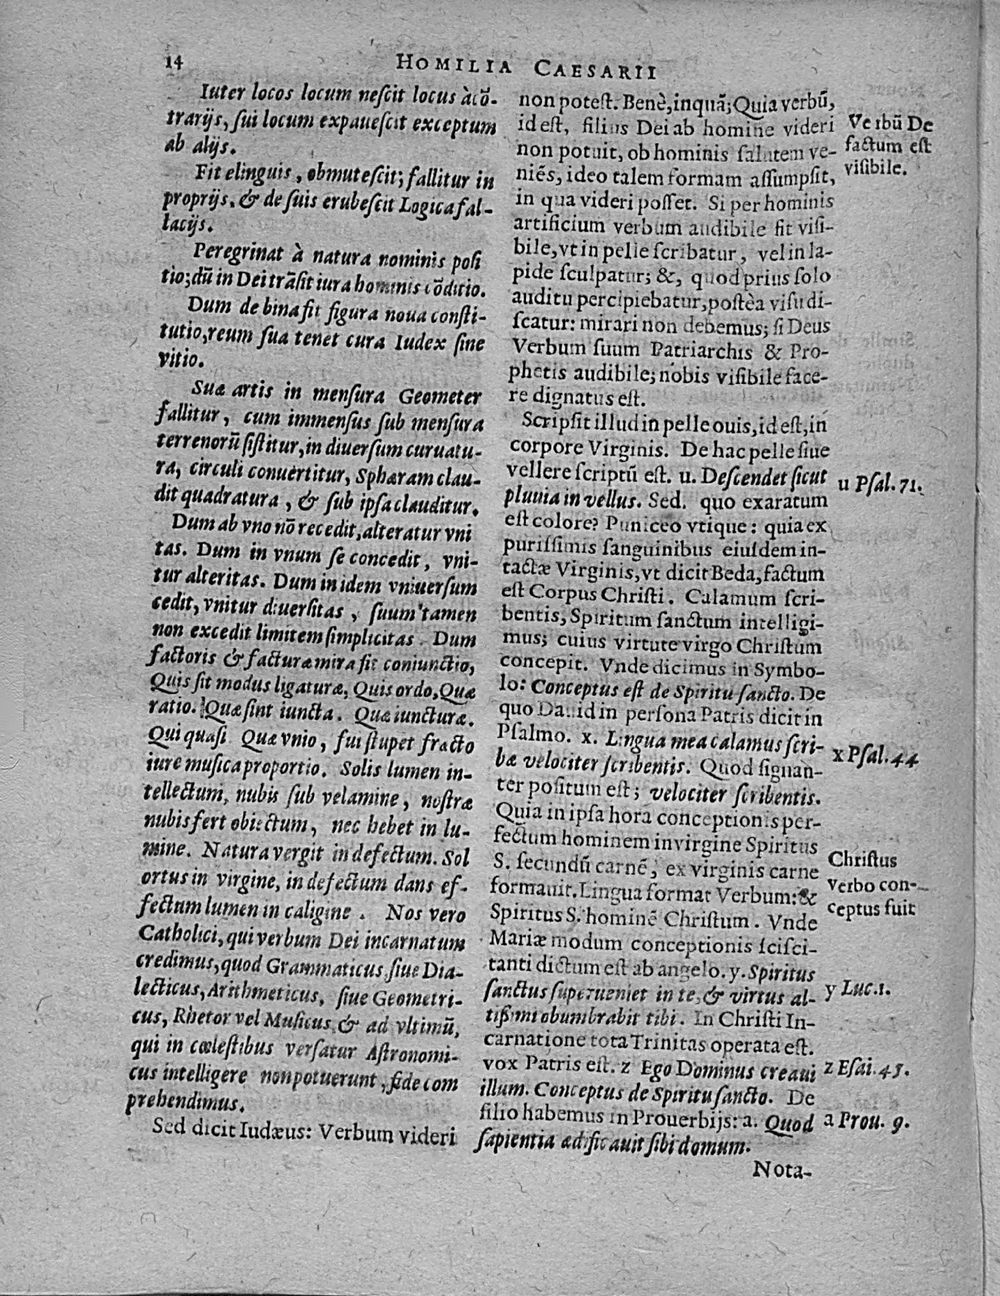 14
HOMILIA CAESARII
Iuter locos locum nescit locus à cõ-
trarijs, sui locum expauescit exceptum
ab alijs.
Fit elinguis, obmutescit; fallitur in
proprijs, & de suis erubescit Logica fal-
lacijs.
Peregrinat à natura nominis posi
tio; dũ in Dei trãsit iura hominis cõditio.
Dum de bina fit figura noua consti-
tutio, reum sua tenet cura Iudex sine
vitio.
Suæ artis in mensura Geometer
fallitur, cum immensus sub mensura
terrenorũ sistitur, in diuersum curuatu-
ra, circuli conuertitur, Sphæram clau-
dit quadratura, & sub ipsa clauditur.
Dum ab vno nõ recedit, alteratur vni
tas. Dum in vnum se concedit, vni-
tur alteritas. Dum in idem vniuersum
cedit, vnitur diuersitas, suum tamen
non excedit limitem simplicitas. Dum
factoris & facturæ mira fit coniunctio,
Quis sit modus ligaturæ, Quis ordo, Quæ
ratio. Quæ sint iuncta. Quæ iuncturæ.
Qui quasi Quæ vnio, fui stupet fracto
iure musica proportio. Solis lumen in-
tellectum, nubis sub velamine, nostræ
nubis fert obiectum, nec hebet in lu-
mine. Natura vergit in defectum. Sol
ortus in virgine, in defectum dans ef-
fectum lumen in caligine. Nos vero
Catholici, qui verbum Dei incarnatum
credimus, quod Grammaticus, siue Dia-
lecticus, Arithmeticus, siue Geometri-
cus, Rhetor vel Musicus, & ad vltimũ,
qui in cœlestibus versatur Astronomi-
cus intelligere non potuerunt, fide com
prehendimus.
Sed dicit Iudæus: Verbum videri
non potest. Benè, inquã; Quia verbũ,
id est, filius Dei ab homine videri
non potuit, ob hominis salutem ve-
niẽs, ideo talem formam assumpsit,
in qua videri posset. Si per hominis
artificium verbum audibile fit visi-
bile, vt in pelle scribatur, vel in la-
pide sculpatur; &, quod prius solo
auditu percipiebatur, postèa visu di-
scatur: mirari non debemus; si Deus
Verbum suum Patriarchis & Pro-
phetis audibile; nobis visibile face-
re dignatus est.
Scripsit illud in pelle ouis, id est, in
corpore Virginis. De hac pelle siue
vellere scriptũ est. u. Descendet sicut
pluuia in vellus. Sed quo exaratum
est colore? Puniceo vtique: quia ex
purissimis sanguinibus eiusdem in-
tactæ Virginis, vt dicit Beda, factum
est Corpus Christi. Calamum scri-
bentis, Spiritum sanctum intelligi-
mus; cuius virtute virgo Christum
concepit. Vnde dicimus in Symbo-
lo: Conceptus est de Spiritu sancto. De
quo Dauid in persona Patris dicit in
Psalmo. x. Lingua mea calamus scri-
bæ velociter scribentis. Quod signan-
ter positum est; velociter scribentis.
Quia in ipsa hora conceptionis per-
fectum hominem in virgine Spiritus
S. secundũ carnẽ, ex virginis carne
formauit. Lingua format Verbum: &
Spiritus S. hominẽ Christum. Vnde
Mariæ modum conceptionis sciscì-
tanti dictum est ab angelo. y. Spiritus
sanctus superueniet in te, & virtus al-
tissimi obumbrabit tibi. In Christi In-
carnatione tota Trinitas operata est.
vox Patris est. z Ego Dominus creaui
illum. Conceptus de Spiritu sancto. De
filio habemus in Prouerbijs: a. Quod
sapientia ædificauit sibi domum.
Nota-
Verbũ De
factum est
visibile.
u Psal. 71.
x Psal. 44
Christus
verbo con-
ceptus fuit
y Luc. 1.
z Esai. 45.
a Prou. 9.